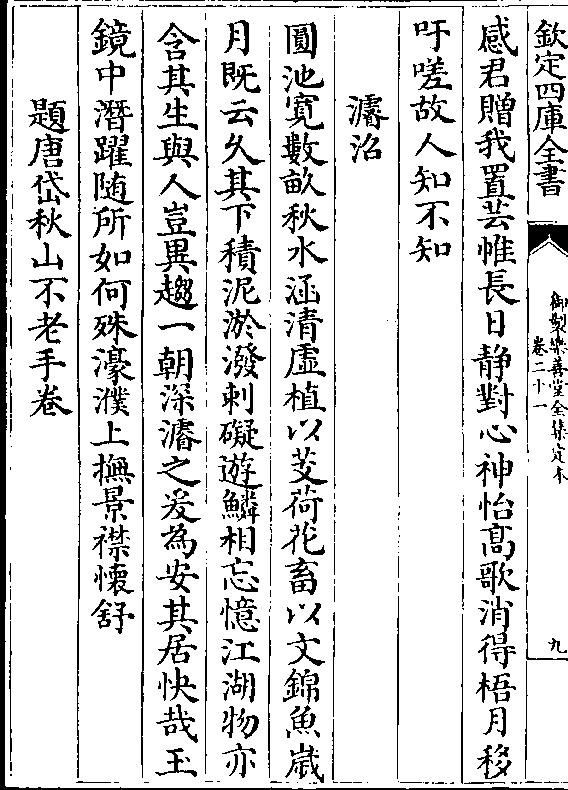 欽定四庫全書
御製樂善堂全集定本
卷二十一
九
感君贈我置芸帷長日静對心神怡髙歌消得梧月移
吁嗟故人知不知
濬沼
圓池寛數畝秋水涵清虛植以芰荷花畜以文錦魚嵗
月既云久其下積泥淤潑刺礙遊鱗相忘憶江湖物亦
含其生與人豈異趨一朝深濬之爰為安其居快哉玉
鏡中潛躍随所如何殊濠濮上撫景襟懷舒
題唐岱秋山不老手卷